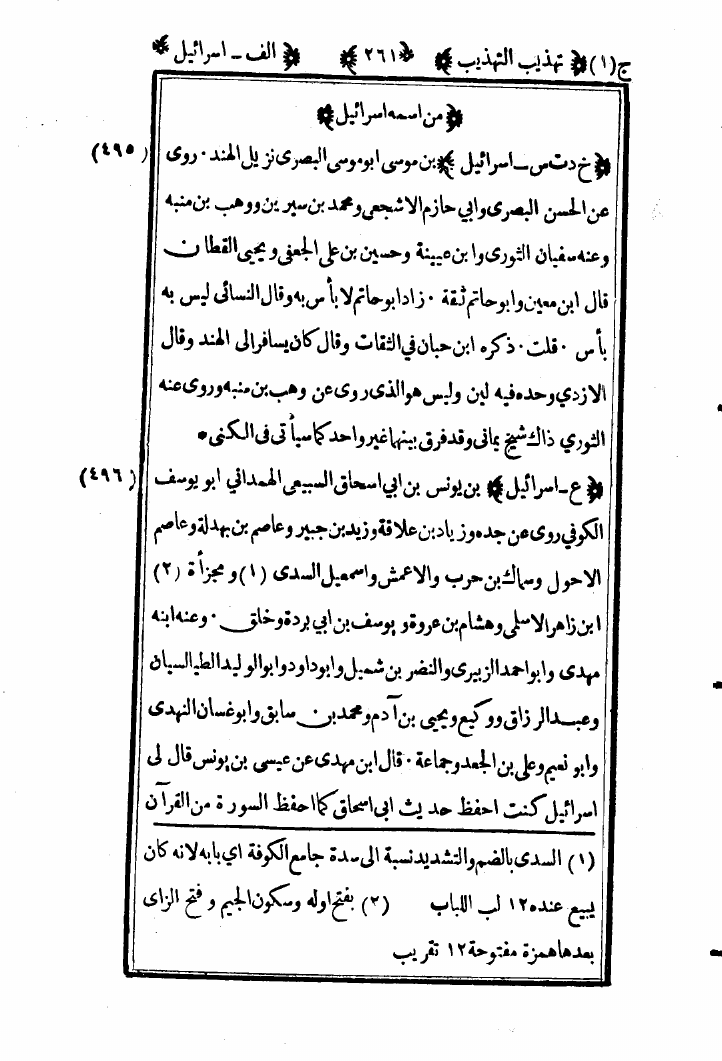 ج(١) ﴿ تهذيب التهذيب ﴾ ﴿٢٦١﴾ ﴿ الف ـ اسرائيل ﴾
﴿ من اسمه اسرائيل ﴾
﴿ خ د ت س ـ اسرائيل ﴾ بن موسى ابو موسى البصرى نزيل الهند . روى (٤٩٥)
عن الحسن البصرى وابي حازم الاشجعى ومحمد بن سيرين ووهب بن منبه
وعنه سفيان الثورى وابن عيينة وحسين بن على الجعفى ويحيى القطان
قال ابن معين وابو حاتم ثقة . زاد ابو حاتم لا بأس به وقال النسائى ليس به
بأس . قلت . ذكره ابن حبان في الثقات وقال كان يسافر الى الهند وقال
الازدي وحده فيه لين وليس هو الذى روى عن وهب بن منبه وروى عنه
الثوري ذاك شيخ يمانى وقد فرق بينهما غير واحد كما سيأتى فى الكنى .
﴿ ع ـ اسرائيل ﴾ بن يونس بن ابي اسحاق السبيعى الهمداني ابو يوسف (٤٩٦)
الكوفي روى عن جده وزياد بن علاقة وزيد بن جبير وعاصم بن بهدلة وعاصم
الاحول وسماك بن حرب والاعمش واسمعيل السدى (١) ومجزأة (٢)
ابن زاهر الاسلمى وهشام بن عروة ويوسف بن ابي بردة وخلق . وعنه ابنه
مهدى وابو احمد الزبيرى والنضر بن شميل وابو داود وابو الوليد الطيالسيان
وعبد الرزاق ووكيع ويحيى بن آدم ومحمد بن سابق وابو غسان النهدى
وابو نعيم وعلى بن الجعد وجماعة . قال ابن مهدى عن عيسى بن يونس قال لى
اسرائيل كنت احفظ حديث ابى اسحاق كما احفظ السورة من القرآن
(١) السدى بالضم والتشديد نسبة الى سدة جامع الكوفة اي بابه لانه كان
يبيع عنده ١٢ لب اللباب (٢) بفتح اوله وسكون الجيم وفتح الزاى
بعدها همزة مفتوحة ١٢ تقريب